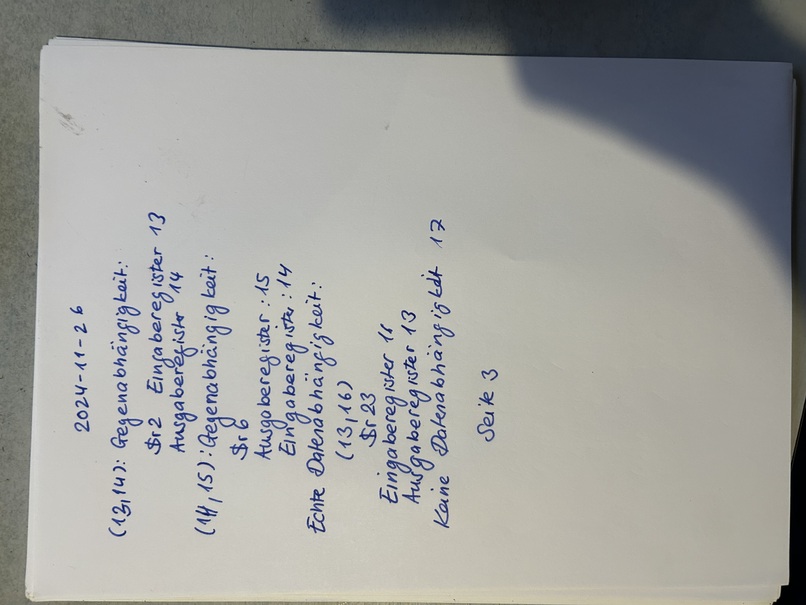 2024-11-26
(13,14): Gegenabhängigkeit:
$r2 Eingaberegister 13
Ausgaberegister 14
(14,15): Gegenabhängigkeit:
$r6
Ausgaberegister: 15
Eingaberegister: 14
Echte Datenabhängigkeit:
(13,16)
$r23
Eingaberegister 16
Ausgaberegister 13
Keine Datenabhängigkeit 17
Seite 3